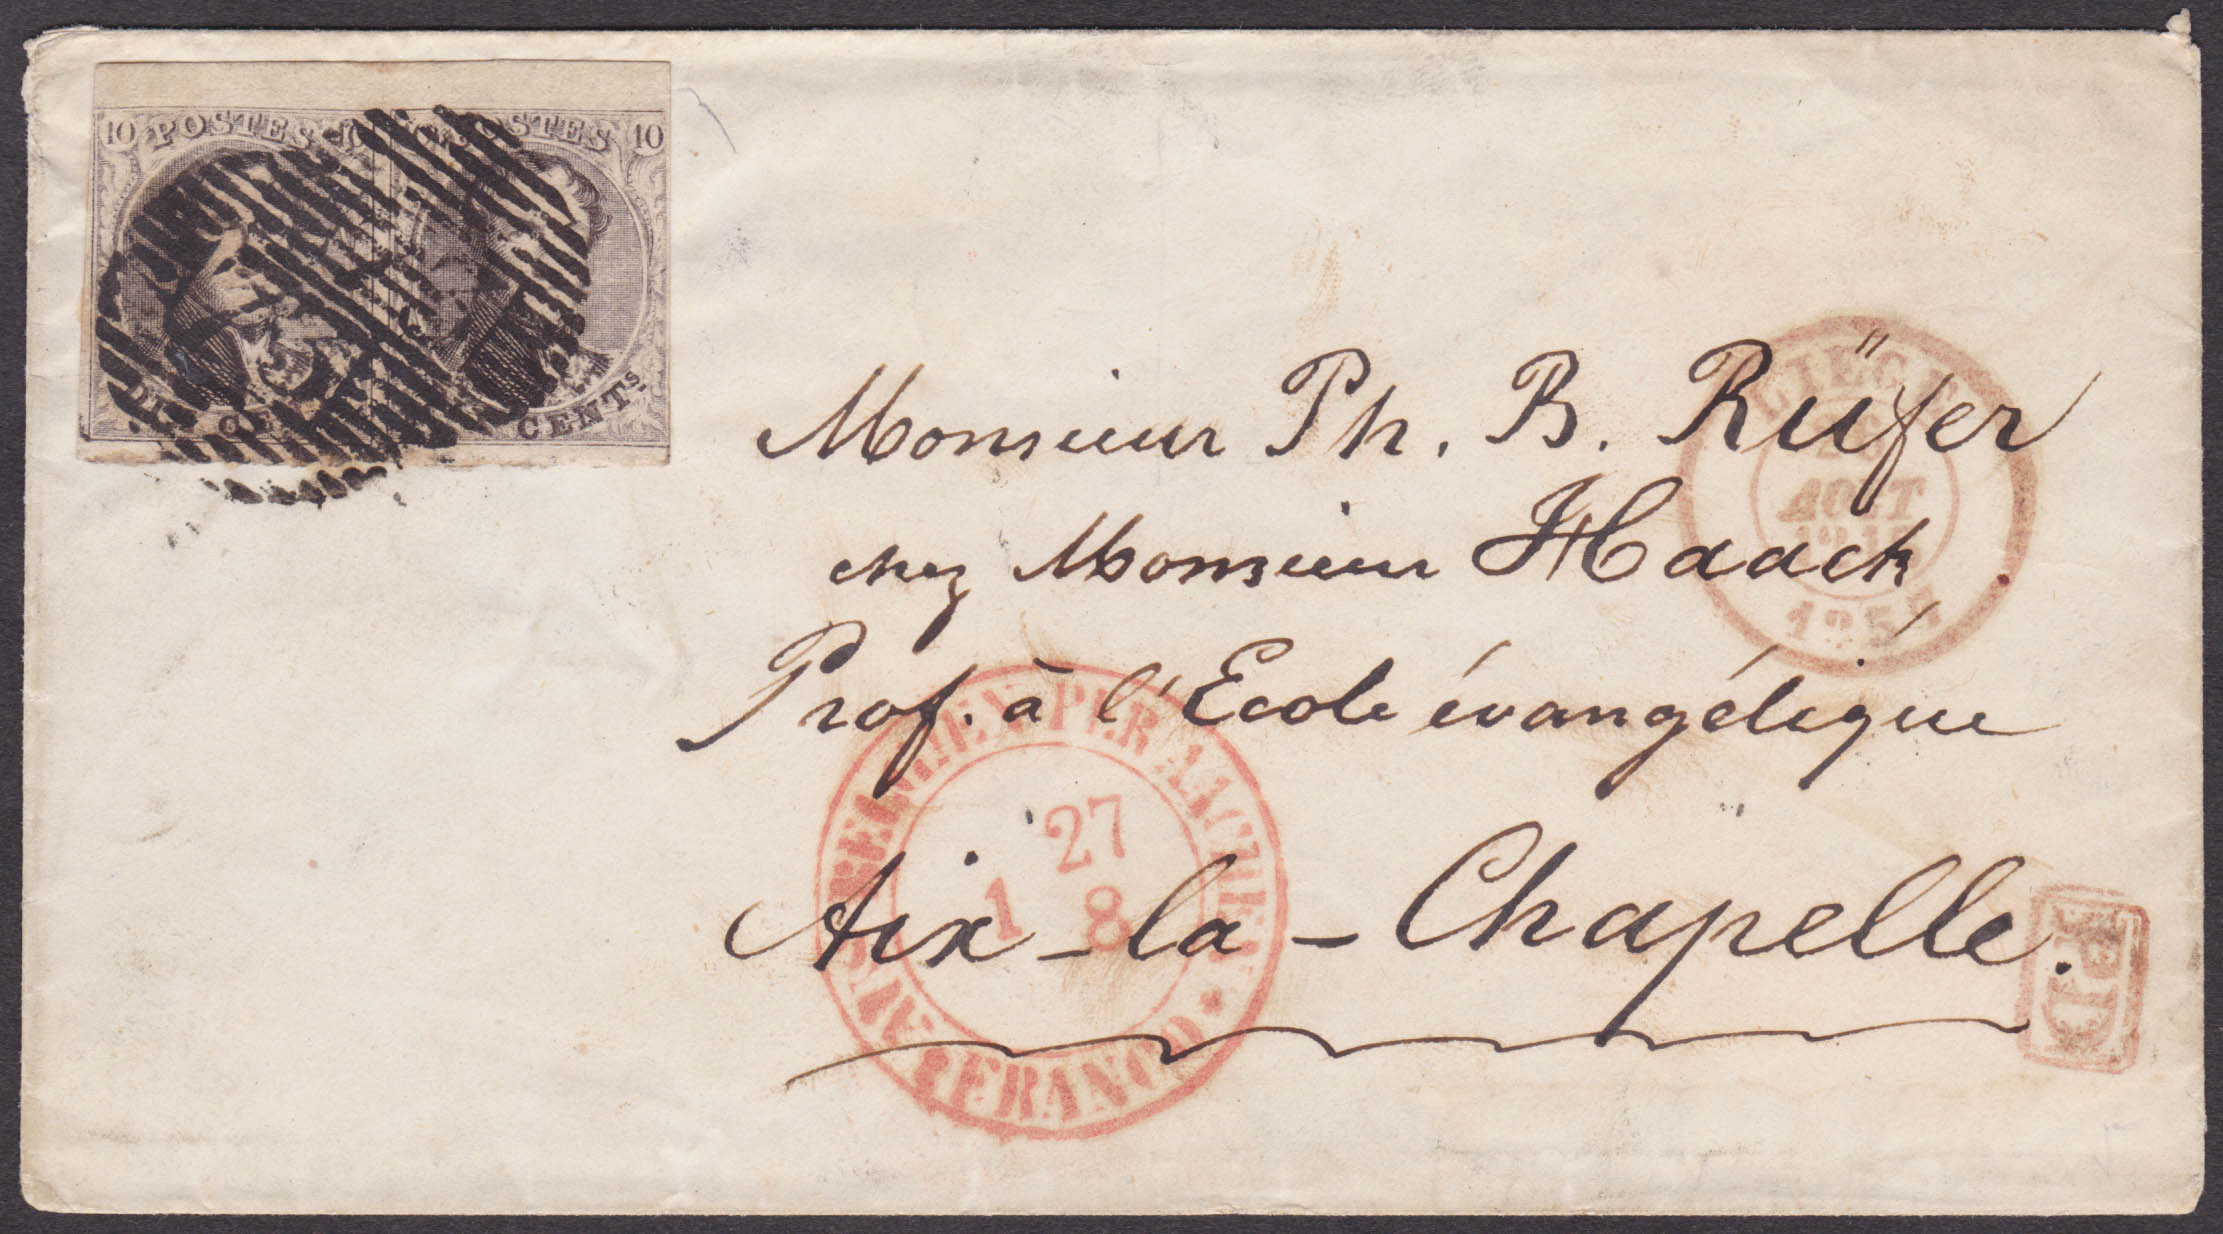 10 POSTES 10 POSTES 10
CENTs.
LIÉGE
AOUT
Monsieur Ph. B. Rüfer
chez Monsieur Haack,
Prof. à l'Ecole évangélique
Aix-la-Chapelle.
AUS BELGIEN PER AACHEN
27
1 8
FRANCO
PD